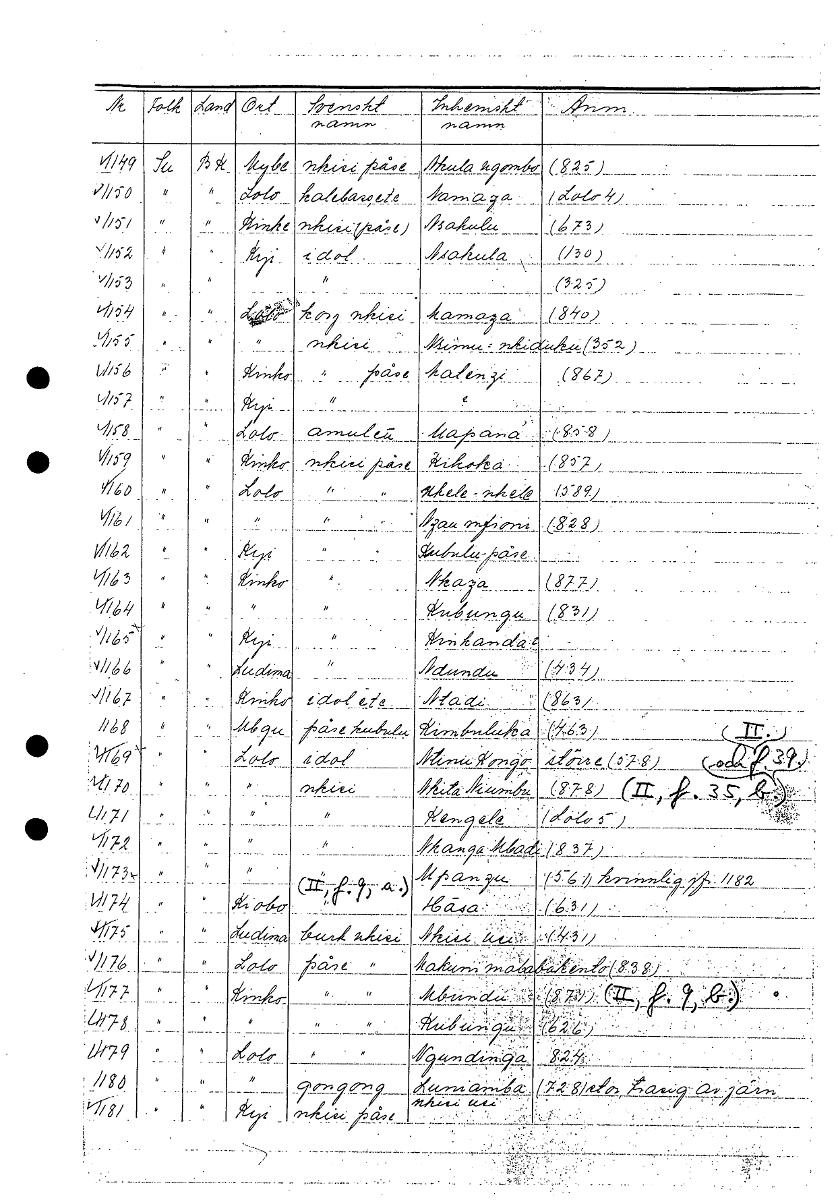 Nr Folk Land Ort Svenskt namn Inhemskt namn Anm
1149 Su BK Mybe nkisi påse Nkula ngombo (825)
1150 " " Lolo kalebassete Namaza (Lolo 4)
1151 " " Kinke nkisi (påse) Nsakulu (673)
1152 " " Kyi idol Nsakula (130)
1153 " " " (325)
1154 " " Lolo korg nkisi Mamaza (840)
1155 " " " nkisi Nsimu = nkiduku (352)
1156 " " Kinko " påse Kalenzi (867)
1157 " " Kyi " "
1158 " " Lolo amulett Mapana (858)
1159 " " Kinko nkisi påse Kikoka (857)
1160 " " Lolo " " Nkele-nkele (589)
1161 " " " " " Nzau mfioni (828)
1162 " " Kyi " " Kubulu-påse
1163 " " Kinko " Nkaza (877)
1164 " " " " Kubungu (831)
1165 x " " Kyi " Kinkanda
1166 " " Ludima " Ndundu (434)
1167 " " Kinko idol ete Ntadi (863)
1168 " " Mbgu påse kubulu Kimbuluka (463) (II.)
1169 " " Lolo idol Ntinu Kongo större (578) (och f. 39.)
1170 " " " nkisi Nkita Nsumbu (878) (II, f. 35, b.)
1171 " " " " Kengele (Lolo 5)
1172 " " " " Nkanga Mbadi (837)
1173 " " " " Mpangu (561) kvinnlig jfr. 1182
(II, f. 9, a.)
1174 " " Kiobo " Hāsa (631)
1175 " " Ludima burk nkisi Nkisi usi (431)
1176 " " Lolo påse " Makuni malababakento (838)
1177 " " Kinko " " Mbundu (871) (II, f. 9, b.)
1178 " " " " " Kubungu (626)
1179 " " Lolo " " Ngundinga 824
1180 " " " gongong Luniamba (728) stor trasig av järn
1181 " " Kyi nkisi påse nkisi usi